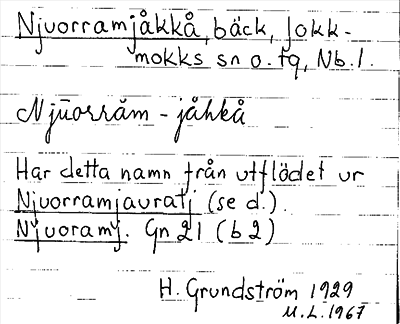 Njuorramjåkkå, bäck, Jokk-
mokks sn o. tg, Nb. l.
Njūorrăm - jåhkå
Har detta namn från utflödet ur
Njuorramjauratj (se d.).
Njuoramj. Gn 21 (b 2)
H. Grundström 1929
M. L. 1967